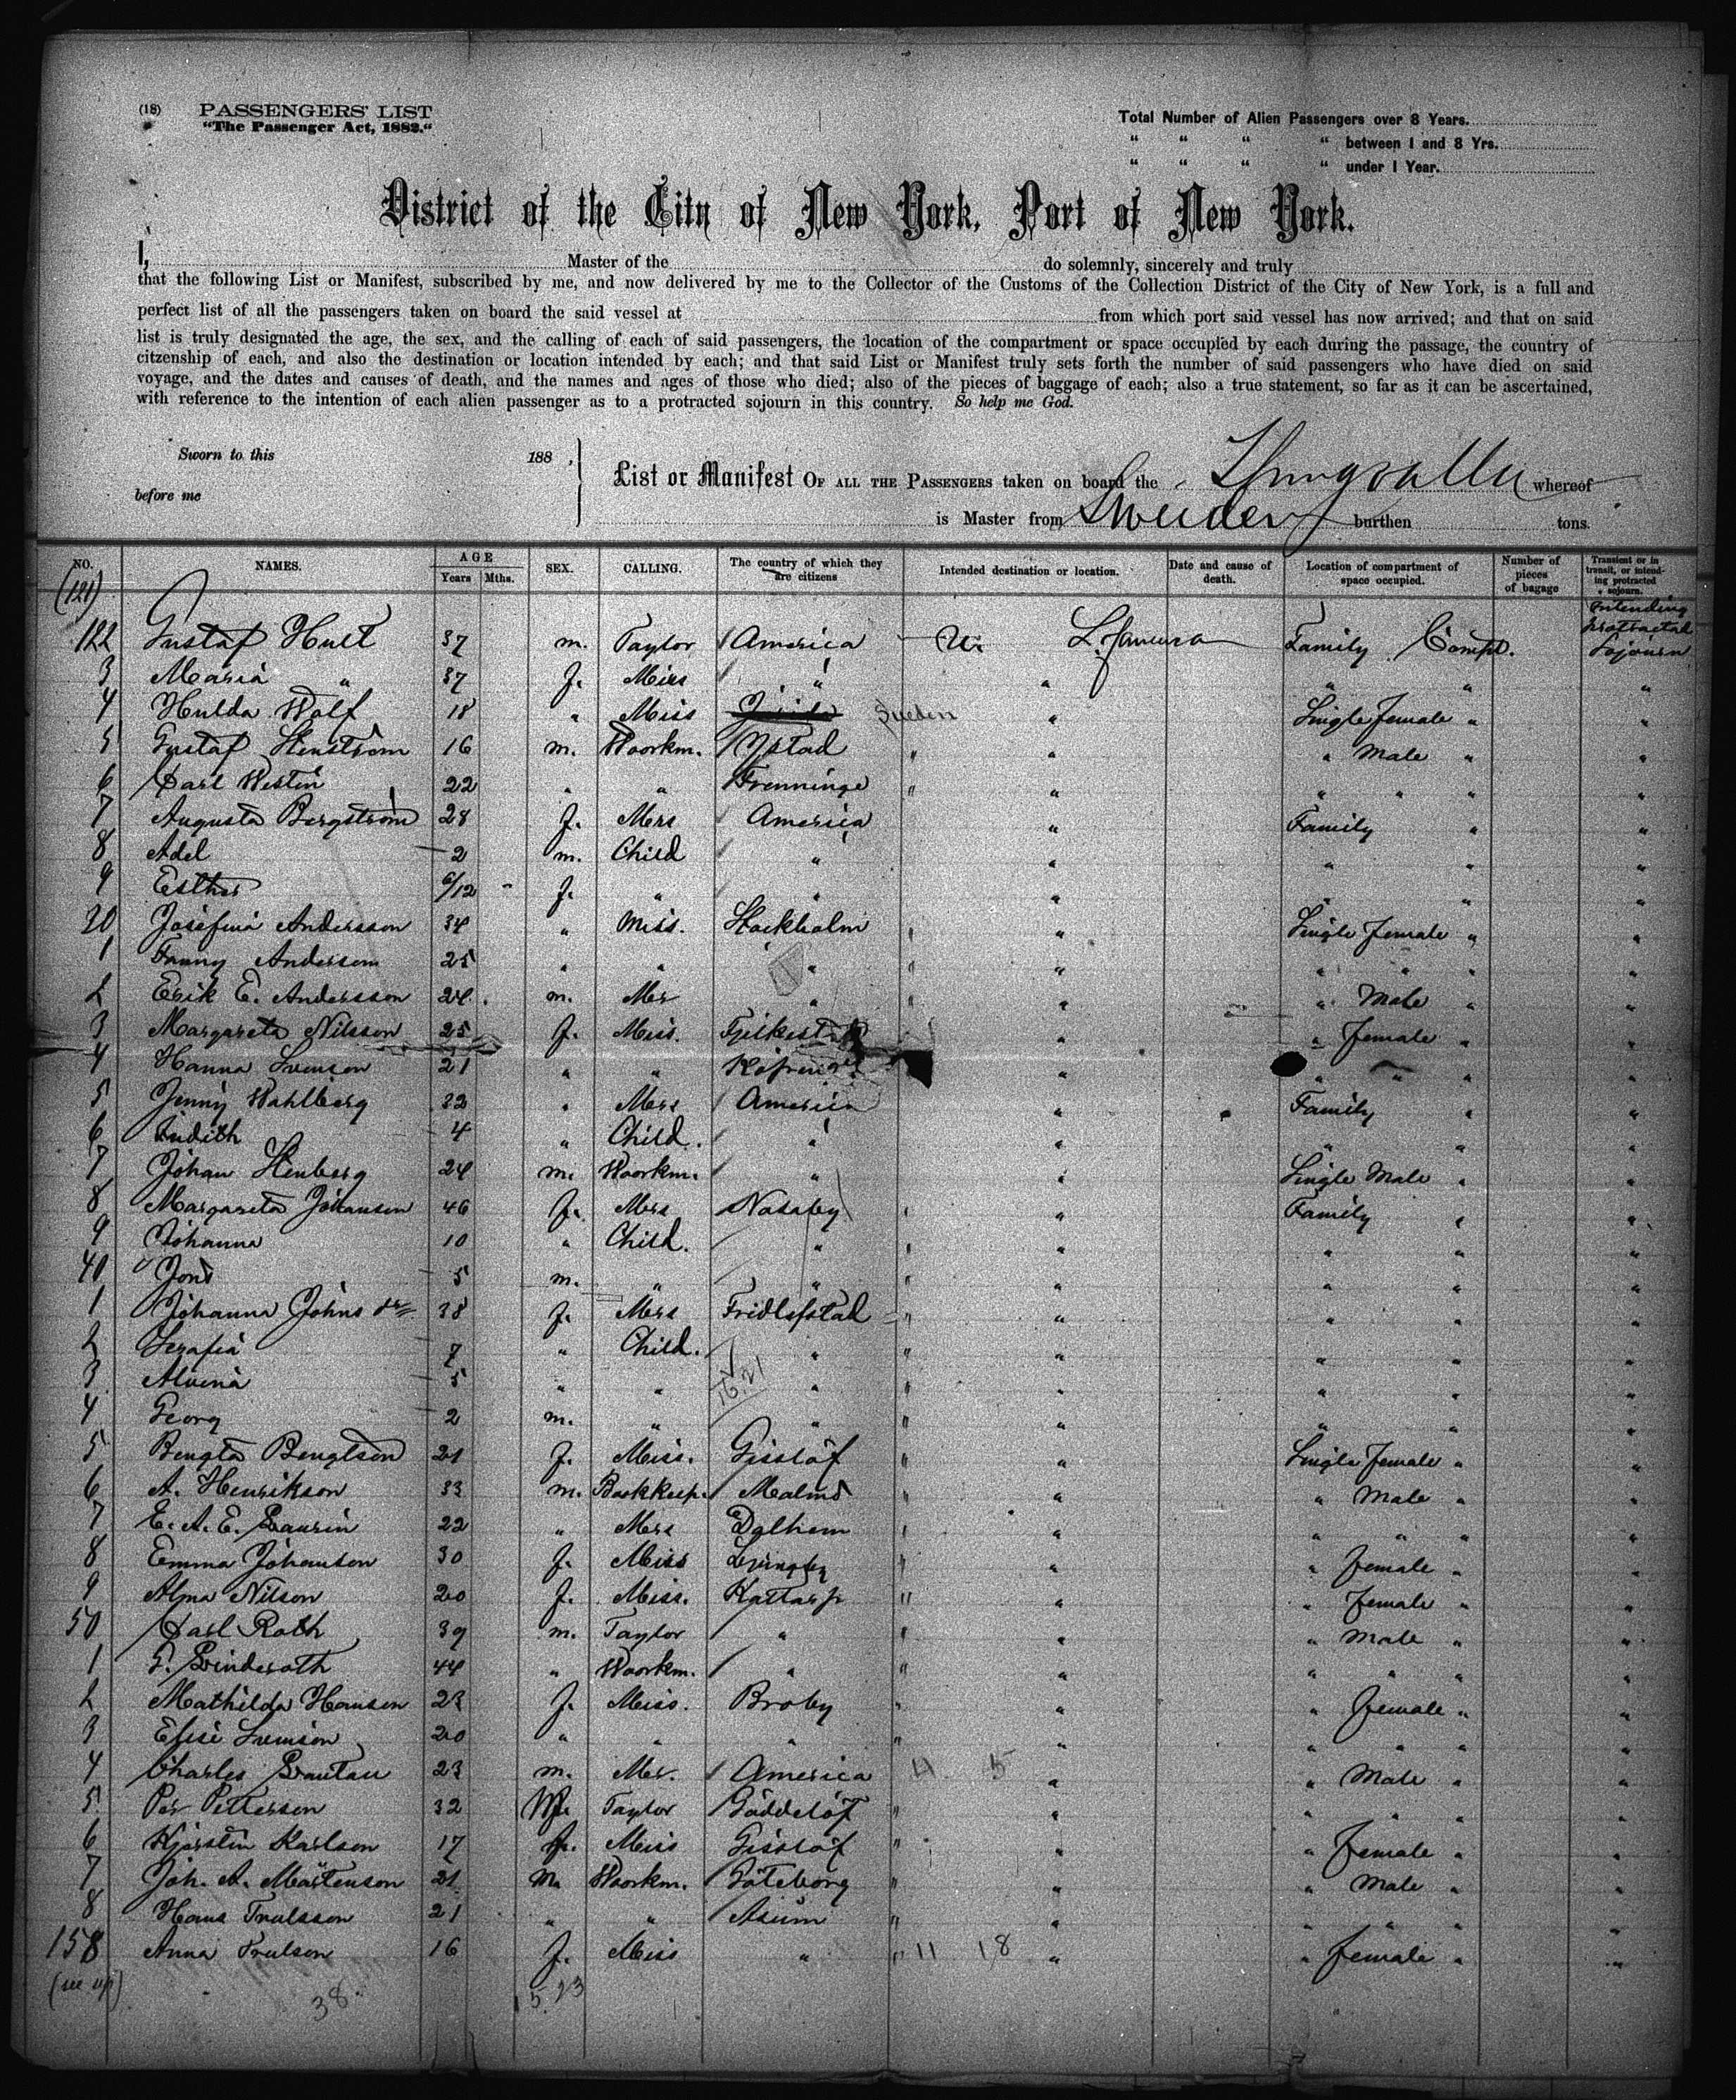 (18) PASSENGERS' LIST
"The Passenger Act, 1882."
Total Number of Alien Passengers over 8 Years.
" " " " between 1 and 8 Yrs.
" " " " under 1 Year.
District of the City of New York, Port of New York.
I, Master of the do solemnly, sincerely and truly
that the following List or Manifest, subscribed by me, and now delivered by me to the Collector of the Customs of the Collection District of the City of New York, is a full and
perfect list of all the passengers taken on board the said vessel at from which port said vessel has now arrived; and that on said
list is truly designated the age, the sex, and the calling of each of said passengers, the location of the compartment or space occupied by each during the passage, the country of
citzenship of each, and also the destination or location intended by each; and that said List or Manifest truly sets forth the number of said passengers who have died on said
voyage, and the dates and causes of death, and the names and ages of those who died; also of the pieces of baggage of each; also a true statement, so far as it can be ascertained,
with reference to the intention of each alien passenger as to a protracted sojourn in this country. So help me God.
Sworn to this 188 ,
before me
List or Manifest OF ALL THE PASSENGERS taken on board the Thingvalla whereof
is Master from Sweden burthen tons.
NO. NAMES. AGE Years Mths. SEX. CALLING. The country of which they are citizens Intended destination or location. Date and cause of death. Location of compartment of space occupied. Number of pieces of bagage Transient or in transit, or intending protracted sojourn.
(121) Intending
122 Gustaf Hult 37 m. Taylor America U. Family Compt. protracted Sojourn
3 Maria " 37 f. " " " " "
4 Hulda Wolf 18 " Miss Sweden " Single female " "
5 Gustaf Stenström 16 m. Woorkm. Ystad " " " Male " "
6 Carl Westin 22 " " Frenninge " " " " " "
7 Augusta Bergström 28 f. Mrs America " Family " "
8 Adel 2 m. Child " " " " "
9 Esther 6/12 " f. " " " " " "
30 Josefina Andersson 34 " Miss. Stockholm " " Single female " "
1 Fanny Anderson 25 " " " " " " " " "
2 Erik E. Andersson 24 m. Mr " " " Male " "
3 Margareta Nilsson 25 f. Miss. " " female " "
4 Hanna Svenson 21 " " " " " " "
5 Jenny Wahlberg 32 " Mrs America " Family " "
6 Judith 4 " Child. " " " " "
7 Johan Stenberg 24 m. Woorkm. " " Single Male " "
8 Margareta Johanson 46 f. Mrs Nosaby " " Family " "
9 Johanna 10 " Child. " " " " " "
40 Jöns 5 m. " " " " " " "
1 Johanna Johns dr 38 f. Mrs Fridlefstad " " " " "
2 Serafia 7 " Child. " " " " " "
3 Alvina 5 " " " " " " " "
4 Georg 2 m. " " " " " " "
5 Bengta Bengtson 21 f. Miss. Gisslöf " " Single female " "
6 A. Henrikson 33 m. Bookkeep. Malmö " " " Male " "
7 E. A. E. Laurin 22 " Dalhem " " " " " "
8 Emma Johanson 30 f. Miss Ljungby " " " female " "
9 Alma Nilson 20 f. Miss. Kattarp " " " female " "
50 Carl Roth 39 m. Taylor " " " " Male " "
1 G. Linderoth 44 " Woorkm. " " " " " " "
2 Mathilda Hansen 23 f. Miss. Broby " " " female " "
3 Elsie Svenson 20 " " " " " " " " "
4 Charles 23 m. Mr. America 11 5 " " Male " "
5 Per Petterson 32 m. Taylor Göddelöf " " " " " "
6 Kjerstin Karlson 17 f. Miss Gisslöf " " " female " "
7 Joh. A. Mårtenson 21 m. Woorkm. Göteborg " " " Male " "
8 Hans Trulsson 21 " " Asum " " " " " "
158 Anna Trulson 16 f. Miss " " 11 18 " " female " "
(see up) 38. 15.23